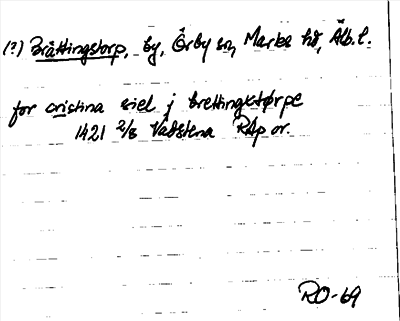 (?) Bråttingstorp, by, Örby sn, Marks hd, Älb. l.
for cristina siel j brettingxtørpe
1421 2/8 Vadstena RAp or.
RO-69